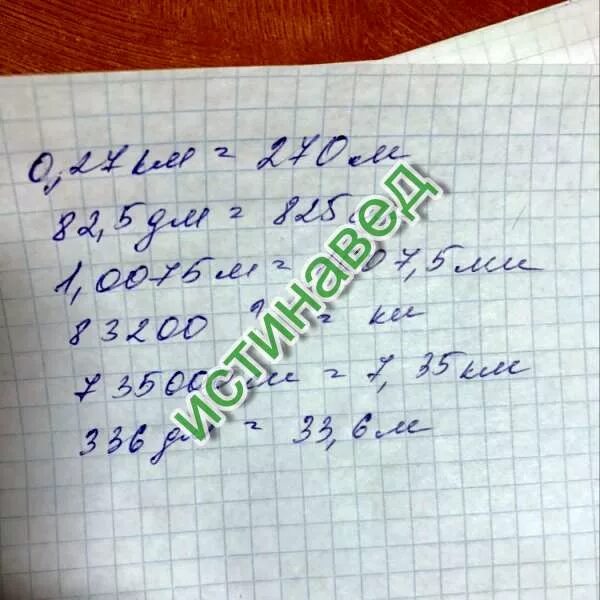 0,27 км = 270 м
82,5 дм = 825
1,0075 м = 07,5 мм
83200 = км
7350 м = 7,35 км
336 дм = 33,6 м
истинавед